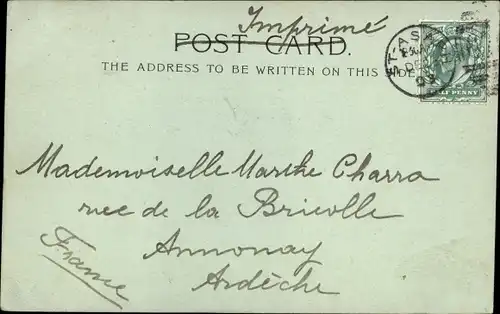 Imprimé
POST CARD.
THE ADDRESS TO BE WRITTEN ON THIS SIDE
ST. ASA
DE
HALF PENNY
Mademoiselle Marthe Charra
rue de la Bricolle
Annonay
Ardèche
France